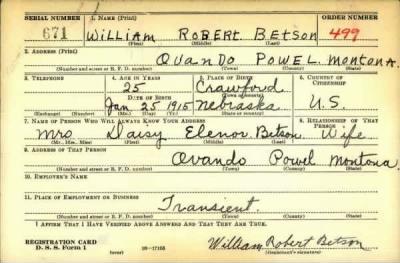 SERIAL NUMBER 1. NAME (Print) ORDER NUMBER
671 WILLIAM ROBERT BETSON 499
(First) (Middle) (Last)
2. ADDRESS (Print)
OVANDO POWEL MONTONA.
(Number and street or R. F. D. number) (Town) (County) (State)
3. TELEPHONE 4. AGE IN YEARS 5. PLACE OF BIRTH 6. COUNTRY OF CITIZENSHIP
25 Crawford
DATE OF BIRTH (Town or county)
Jan 25 1915 Nebraska U.S.
(Exchange) (Number) (Mo.) (Day) (Yr.) (State or country)
7. NAME OF PERSON WHO WILL ALWAYS KNOW YOUR ADDRESS 8. RELATIONSHIP OF THAT PERSON
Mrs Daisy Elenor Betson Wife
(Mr., Mrs., Miss) (First) (Middle) (Last)
9. ADDRESS OF THAT PERSON
Ovando Powel Montona
(Number and street or R. F. D. number) (Town) (County) (State)
10. EMPLOYER'S NAME
11. PLACE OF EMPLOYMENT OR BUSINESS
Transient.
(Number and street or R. F. D. number) (Town) (County) (State)
I AFFIRM THAT I HAVE VERIFIED ABOVE ANSWERS AND THAT THEY ARE TRUE.
REGISTRATION CARD
D. S. S. Form 1 (over) 16-17105 William Robert Betson
(Registrant's signature)